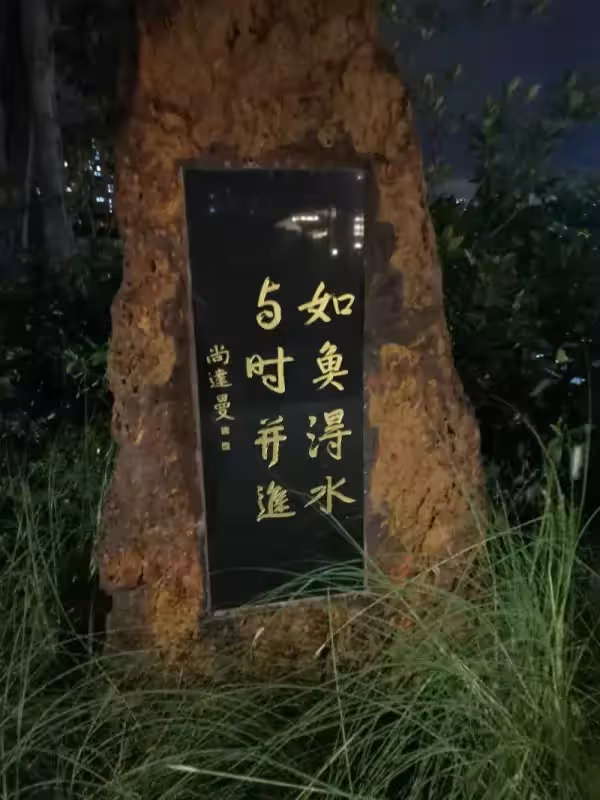 如鱼得水
与时并進
尚達曼